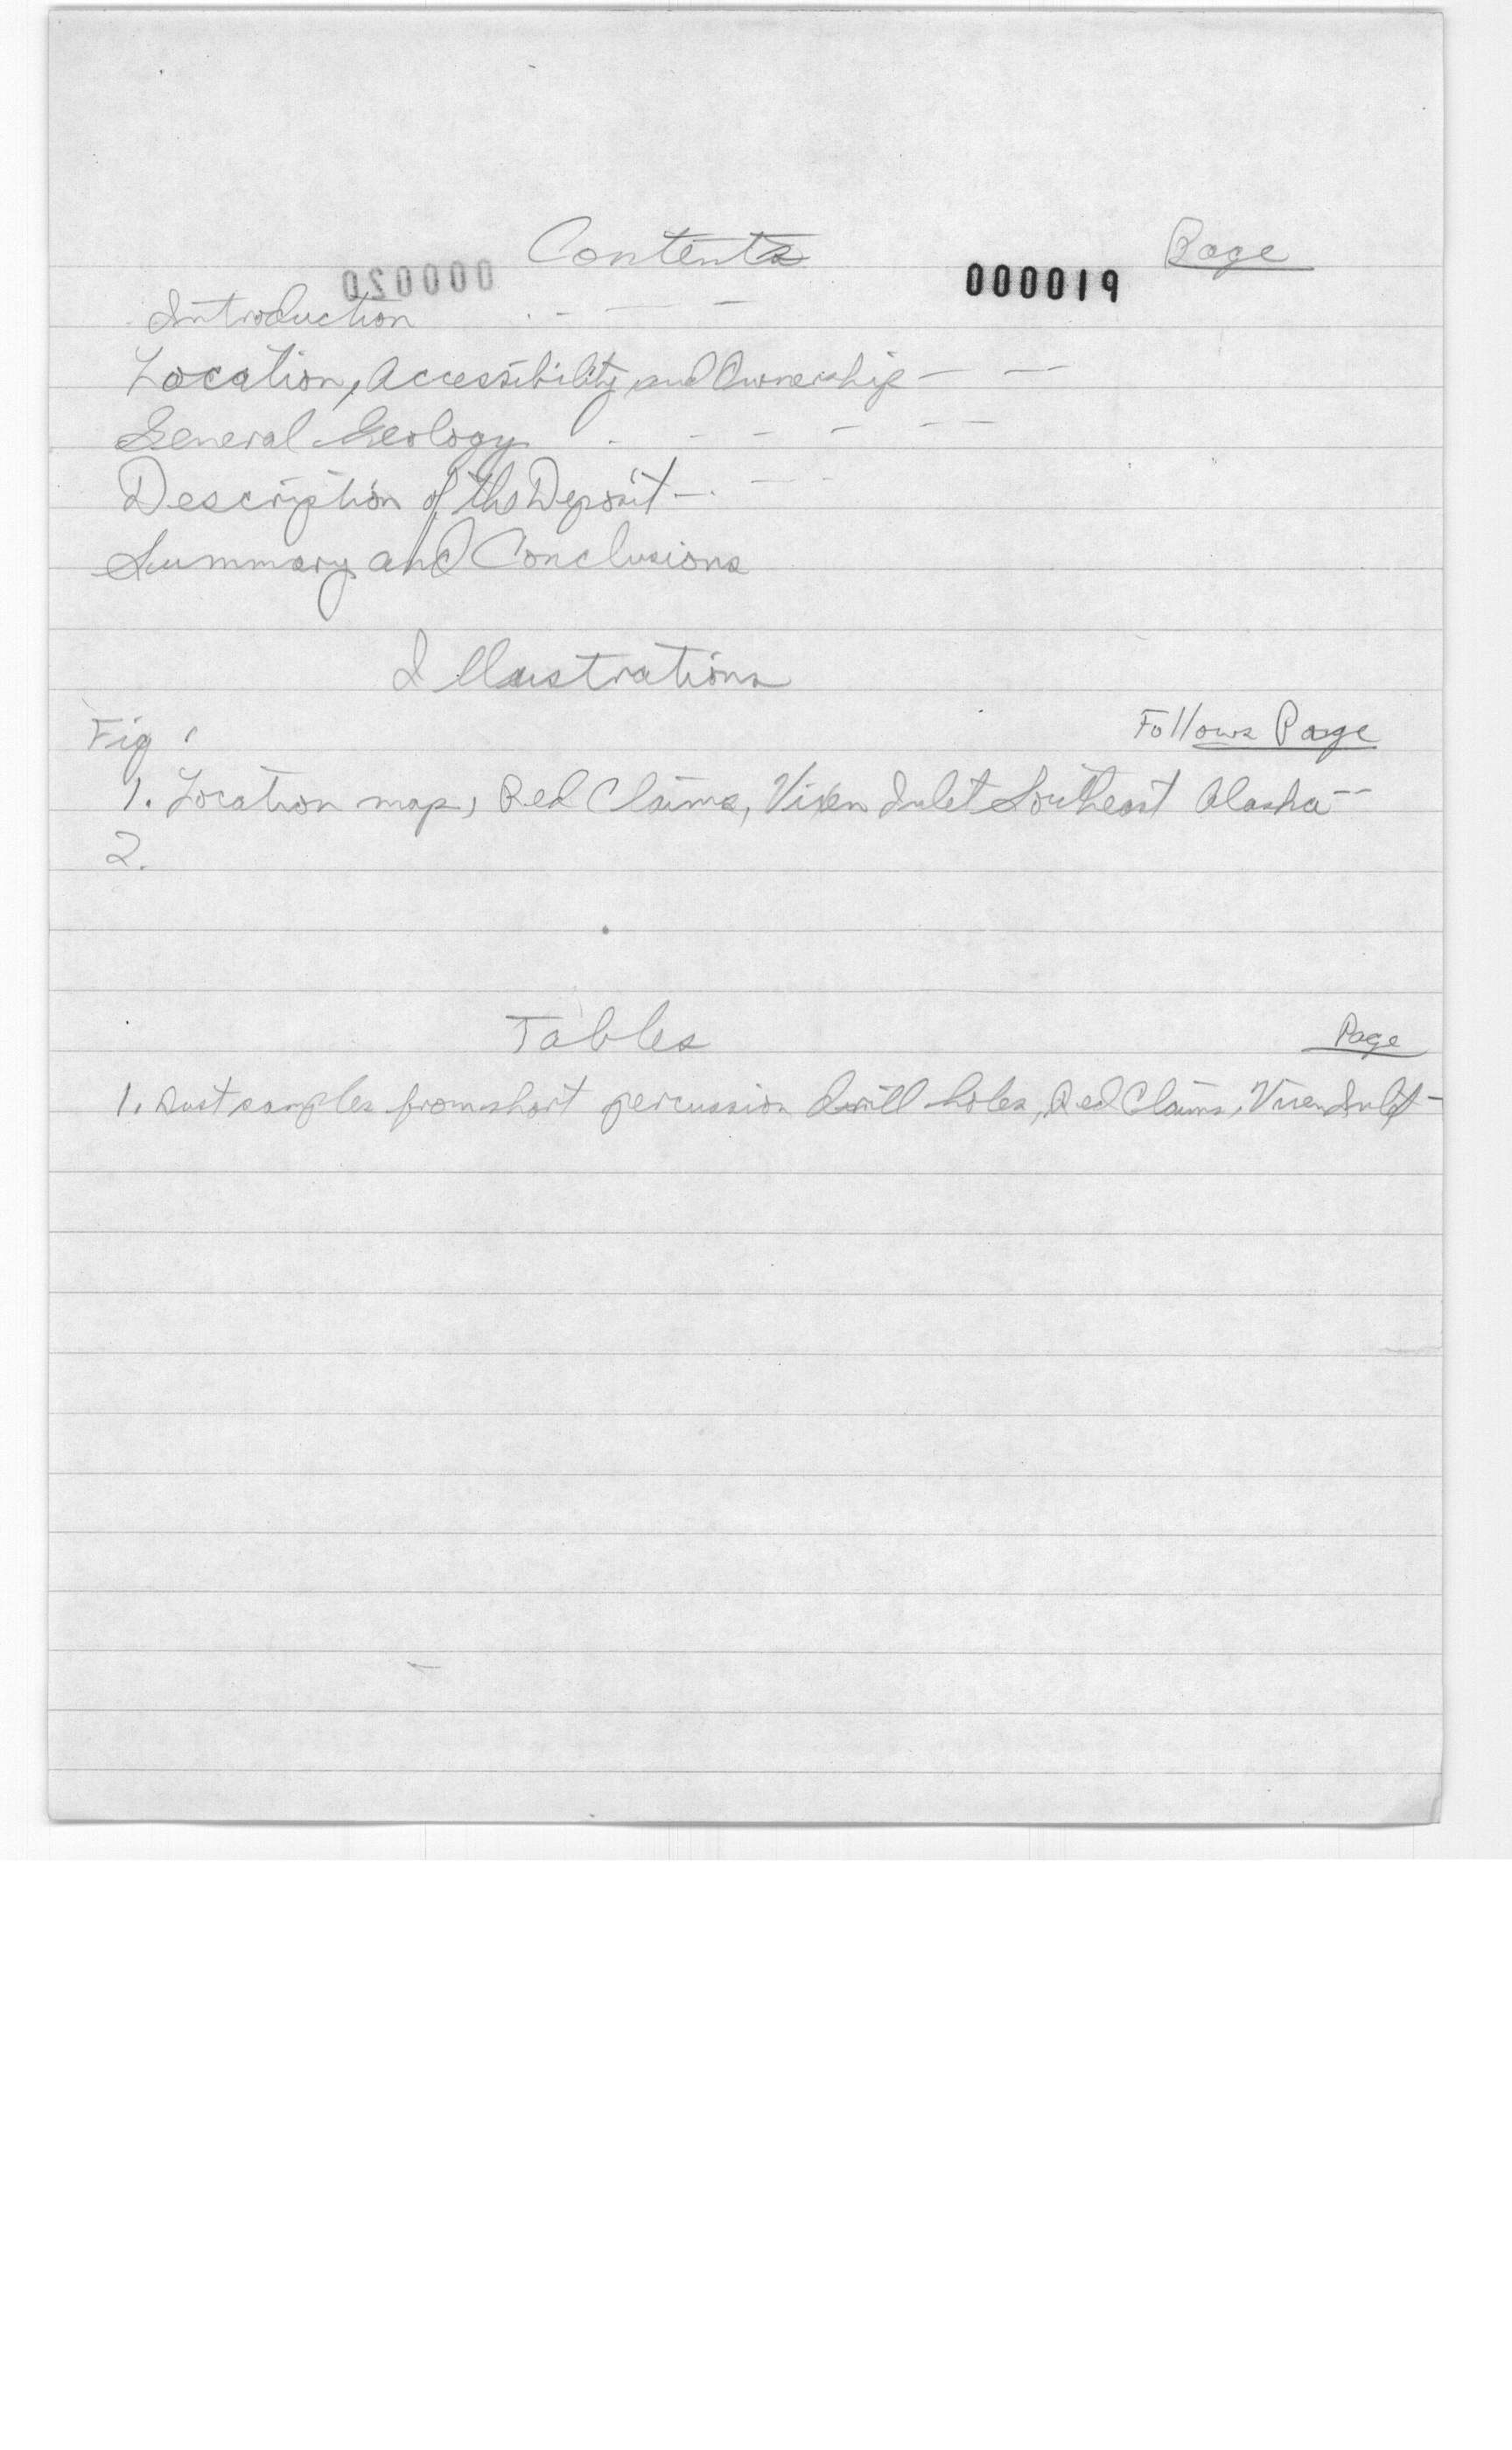 Contents Page
000020 000019
Introduction - - -
Location, Accessibility and Ownership - - -
General Geology . - - - - -
Description of the Deposit - - -
Summary and Conclusions
Illustrations
Fig Follows Page
1. Location map, Red Claims, Vixen Inlet Southeast Alaska --
2.
Tables Page
1. Dust samples from short percussion drill holes, Red Claims, Vixen Inlet -